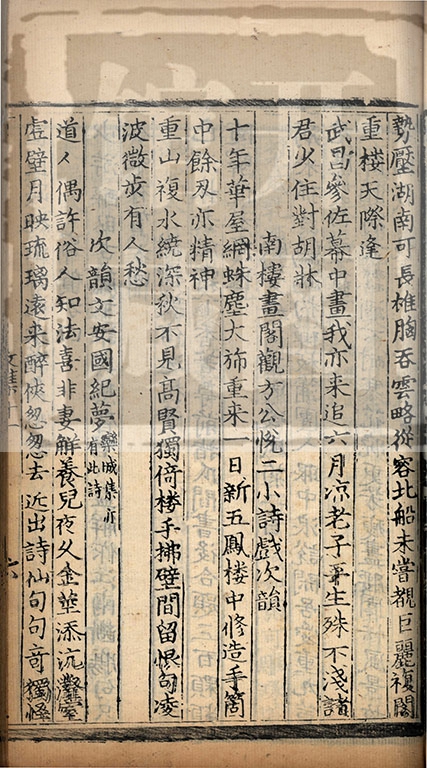 勢壓湖南可長雄胸吞雲略從容北船未嘗覩巨麗複閣
重樓天際逢
武昌參佐幕中畫我亦来追六月凉老子平生殊不淺諸
君少住對胡牀
南樓畫閣觀方公悅二小詩戲次韻
十年華屋網蛛塵大旆重来一日新五鳳樓中修造手箇
中餘刃亦精神
重山複水繞深秋不見高賢獨倚樓手拂壁間留恨句凌
波微步有人愁
次韻文安國紀夢欒城集亦有此詩
道人偶許俗人知法喜非妻解養兒夜久金莖添沆瀣室
虛壁月映琉璃遠来醉俠忽忽去近出詩仙句句奇獨怪